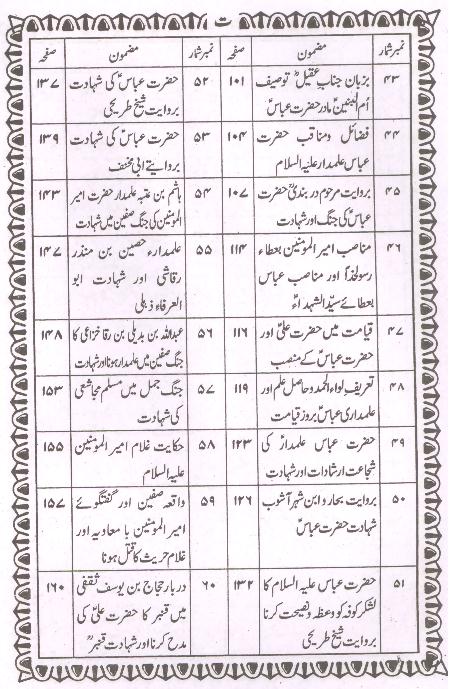 ت
نمبر شمار مضمون صفحہ نمبر شمار مضمون صفحہ
۴۳ بزبان جناب عقیلؓ توصیف ۱۰۱
اُم البنین مادر حضرت عباسؑ
۴۴ فضائل و مناقب حضرت ۱۰۴
عباس علمدار علیہ السلام
۴۵ بروایت مرحوم دربندیؒ حضرت ۱۰۷
عباسؑ کی جنگ اور شہادت
۴۶ مناصب امیر المومنین بعطاء ۱۱۴
رسولخداؐ اور مناصب عباس
بعطائے سیّد الشہداءؑ
۴۷ قیامت میں حضرت علیؑ اور ۱۱۶
حضرت عباسؑ کے منصب
۴۸ تعریف لواء الحمد و حاصل علم اور ۱۱۹
علمداری عباسؑ بروز قیامت
۴۹ حضرت عباس علمدارؑ کی ۱۲۳
شجاعت ارشادات اور شہادت
۵۰ بروایت بحار و ابن شہر آشوب ۱۲۶
شہادت حضرت عباسؑ
۵۱ حضرت عباس علیہ السلام کا ۱۳۲
لشکر کوفہ کو وعظ و نصیحت کرنا
بروایت شیخ طریحی
۵۲ حضرت عباسؑ کی شہادت ۱۳۷
بروایت شیخ طریحی
۵۳ حضرت عباسؑ کی شہادت ۱۳۹
بروایتے ابی مخنف
۵۴ ہاشم بن عتبہ علمدار حضرت امیر ۱۴۳
المومنین کی جنگ صفین میں شہادت
۵۵ علمدارء حصین بن منذر ۱۴۷
رقاشی اور شہادت ابو
العرفاء ذہلی
۵۶ عبداللہ بن بدیلی بن رقا خزاعی کا ۱۴۸
جنگ صفین میں علمدار ہونا اور شہادت
۵۷ جنگ جمل میں مسلم مجاشعی ۱۵۳
کی شہادت
۵۸ حکایت غلام امیر المومنین ۱۵۵
علیہ السلام
۵۹ واقعہ صفین اور گفتگوئے ۱۵۷
امیر المومنین با معاویہ اور
غلام حریث کا قتل ہونا
۶۰ دربار حجاج بن یوسف ثقفی ۱۶۰
میں قنبر کا حضرت علیؑ کی
مدح کرنا اور شہادت قنبرؓ